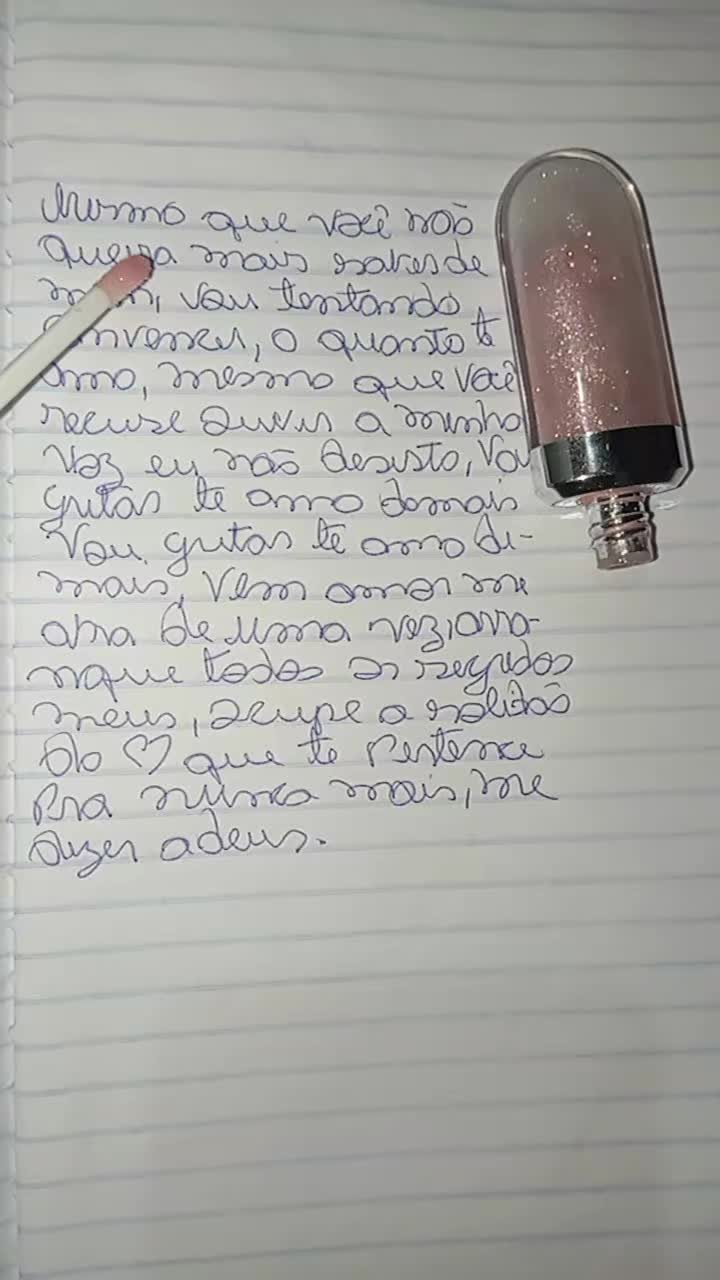 Mesmo que você não
queira mais saber de
mim, vou tentando
convencer, o quanto te
amo, mesmo que você
recuse ouvir a minha
voz eu não desisto, vou
gritar te amo demais
Vou gritar te amo de-
mais, vem amor me
abra de uma vez, arra-
nque todos os segredos
meus, ocupe a solidão
do ♡ que te pertence
Pra nunca mais, me
dizer adeus.